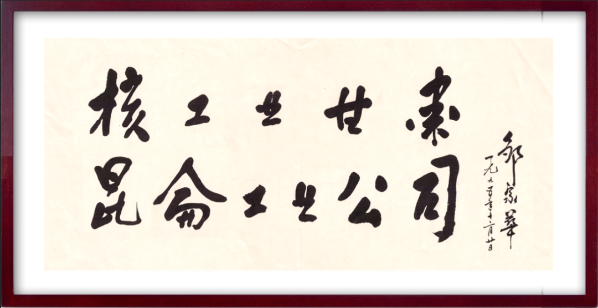 核工业甘肃
昆仑工业公司
邹家华
一九九五年十二月廿日